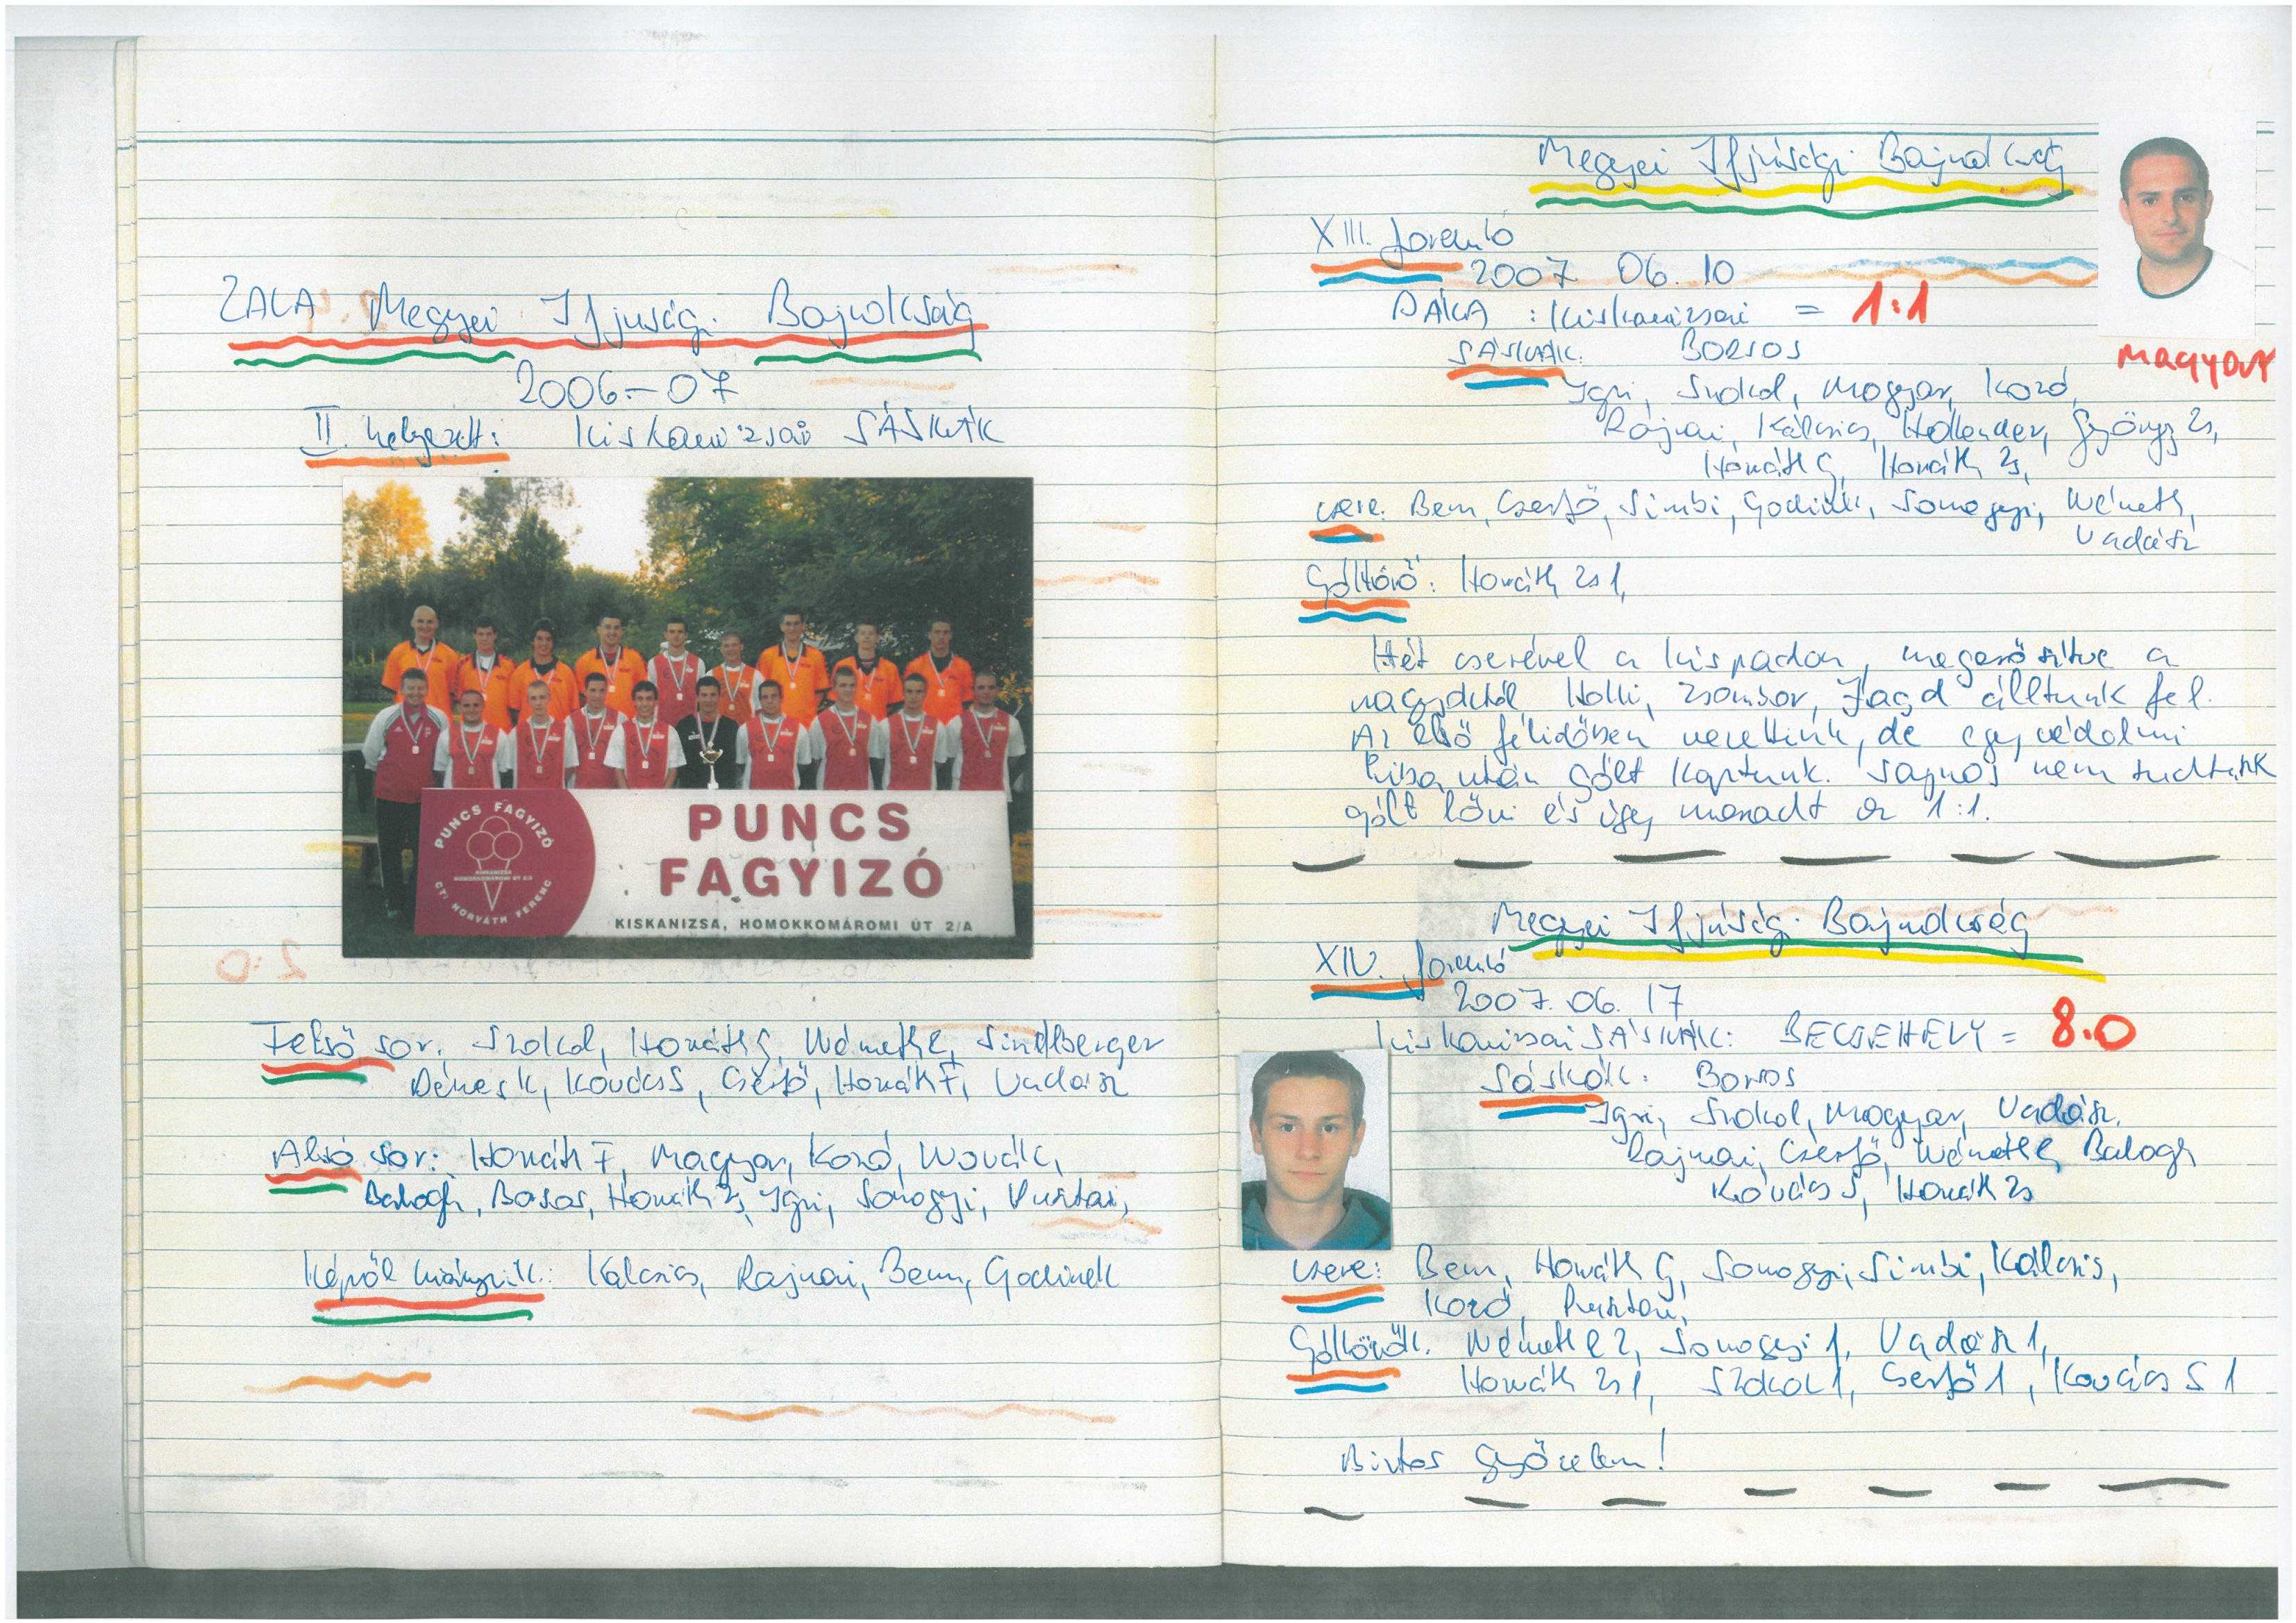 ZALA Megyei Ifjusági Bajnokság
2006-07
II. helyezett: Kiskanizsai SÁSKÁK
PUNCS FAGYIZÓ
KISKANIZSA
HOMOKKOMÁROMI ÚT 2/A
GT: HORVÁTH FERENC
PUNCS
FAGYIZÓ
KISKANIZSA, HOMOKKOMÁROMI ÚT 2/A
2:0
Felső sor: Szokol, Horváth G, Németh L, Sindlberger
Dénes K, Kovács S, Cserfő, Horváth F, Vadász
Alsó sor: Horváth F, Magyar, Kozó, Novák,
Balogh, Borsos, Horváth Zs, Igri, Somogyi, Pusztai,
Képről hiányzik: Kálcsics, Rajnai, Bem, Godinek
Megyei Ifjúsági Bajnokság
XIII. forduló
2007 06.10
PÁKA : Kiskanizsai = 1:1
SÁSKÁK: BORSOS
Magyar
Igri, Szokol, Magyar, Kozó,
Rajnai, Kálcsics, Hollender, Gyöngy Zs,
Horváth G, Horváth Zs,
csere: Bem, Cserfő, Simbi, Godinek, Somogyi, Németh,
Vadász
Góllövő: Horváth Zs 1,
Hét cserével a kispadon, megerősítve a
nagyoktól Holli, Zsombor, álltunk fel.
Az első félidőben vezettünk, de egy védelmi
hiba után gólt kaptunk. Sajnos nem tudtunk
gólt lőni és így maradt az 1:1.
Megyei Ifjúsági Bajnokság
XIV. forduló
2007.06.17
Kiskanizsai SÁSKÁK: BECSEHELY = 8:0
Sáskák: Borsos
Igri, Szokol, Magyar, Vadász,
Rajnai, Cserfő, Németh L, Balogh
Kovács S, Horváth Zs
csere: Bem, Horváth G, Somogyi, Simbi, Kálcsics,
Kozó, Pusztai,
Góllövők: Németh L 2, Somogyi 1, Vadász 1,
Horváth Zs 1, Szokol 1, Cserfő 1, Kovács S 1
Biztos győzelem!